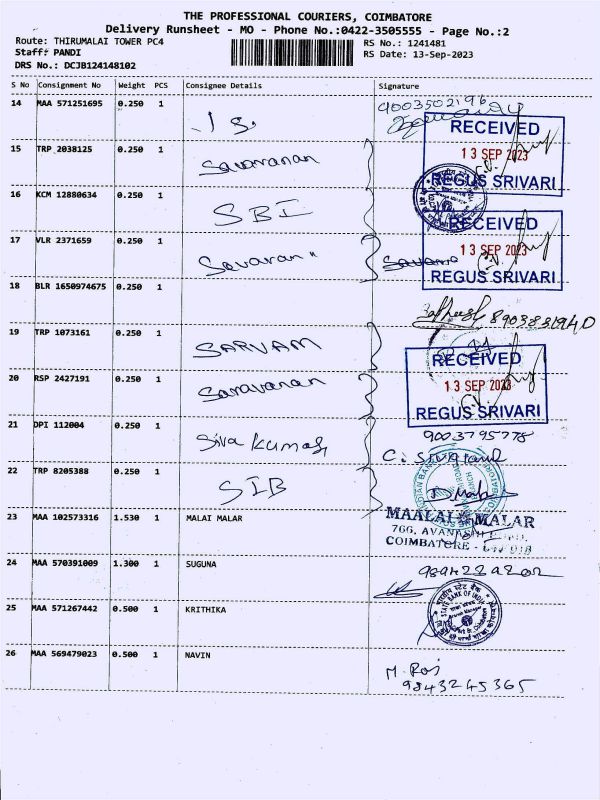 THE PROFESSIONAL COURIERS, COIMBATORE
Delivery Runsheet - MO - Phone No.:0422-3505555 - Page No.:2
Route: THIRUMALAI TOWER PC4
RS No.: 1241481
Staff: PANDI
RS Date: 13-Sep-2023
DRS No.: DCJB124148102
S No Consignment No Weight PCS Consignee Details Signature
14 MAA 571251695 0.250 1 9003502196
RECEIVED
13 SEP 2023
REGUS SRIVARI
15 TRP 2038125 0.250 1 Saravanan
16 KCM 12880634 0.250 1 SBI
RECEIVED
13 SEP 2023
REGUS SRIVARI
17 VLR 2371659 0.250 1 Savaran
18 BLR 1650974675 0.250 1
19 TRP 1073161 0.250 1 SARVAM
RECEIVED
13 SEP 2023
REGUS SRIVARI
20 RSP 2427191 0.250 1 Saravanan
21 DPI 112004 0.250 1 Siva Kumar 9003795778
22 TRP 8205388 0.250 1 SIB
23 MAA 102573316 1.530 1 MALAI MALAR
MAALAI MALAR
766, AVANASHI
COIMBATORE
24 MAA 570391009 1.300 1 SUGUNA
25 MAA 571267442 0.500 1 KRITHIKA
STATE BANK OF INDIA
26 MAA 569479023 0.500 1 NAVIN
M. Raj
9843245365